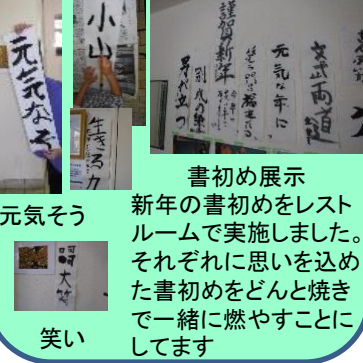 元気な
小山
生きる力
謹賀新年
元気な年に
文武両道
元気そう
大笑
笑い
書初め展示
新年の書初めをレスト
ルームで実施しました。
それぞれに思いを込め
た書初めをどんと焼き
で一緒に燃やすことに
してます